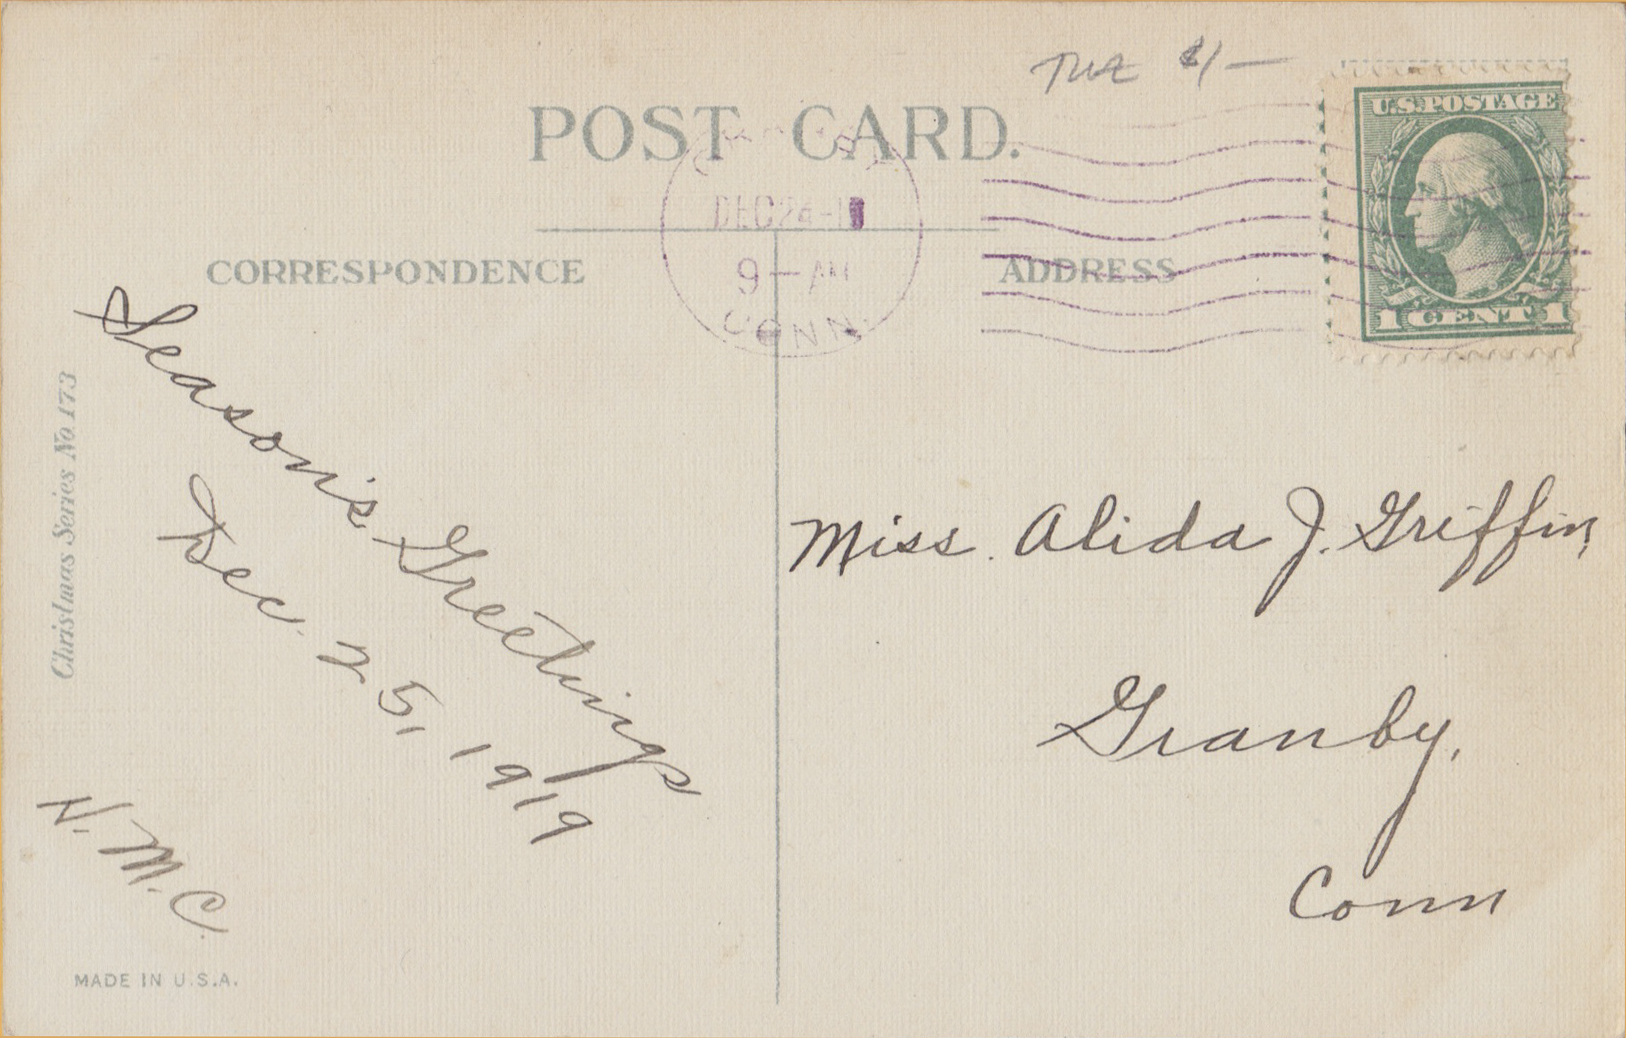 POST CARD.
U.S. POSTAGE
1 CENT 1
DEC 24
9 - AM
CONN.
CORRESPONDENCE
ADDRESS
Season's Greetings
Dec. 25, 1919
N. M. C.
Christmas Series No. 173
MADE IN U.S.A.
Miss. Alida J. Griffin,
Granby,
Conn